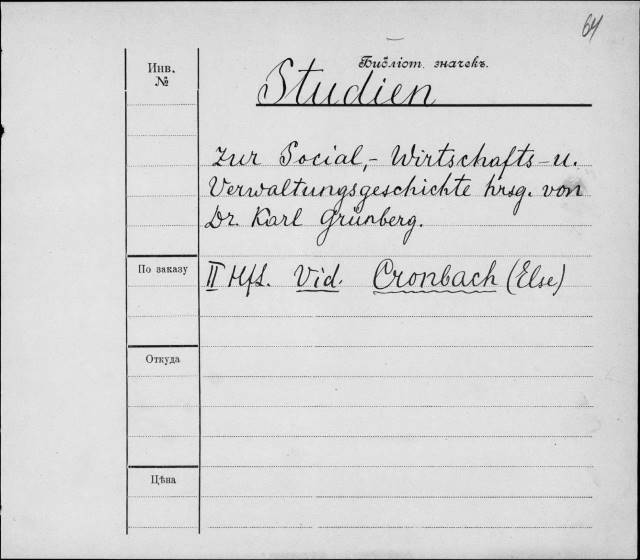 64
Библіот. значекъ.
Инв.
№
Studien
zur Social,- Wirtschafts- u.
Verwaltungsgeschichte hrsg. von
Dr. Karl Grünberg.
По заказу
II Hft. Vid. Cronbach (Else)
Откуда
Цѣна